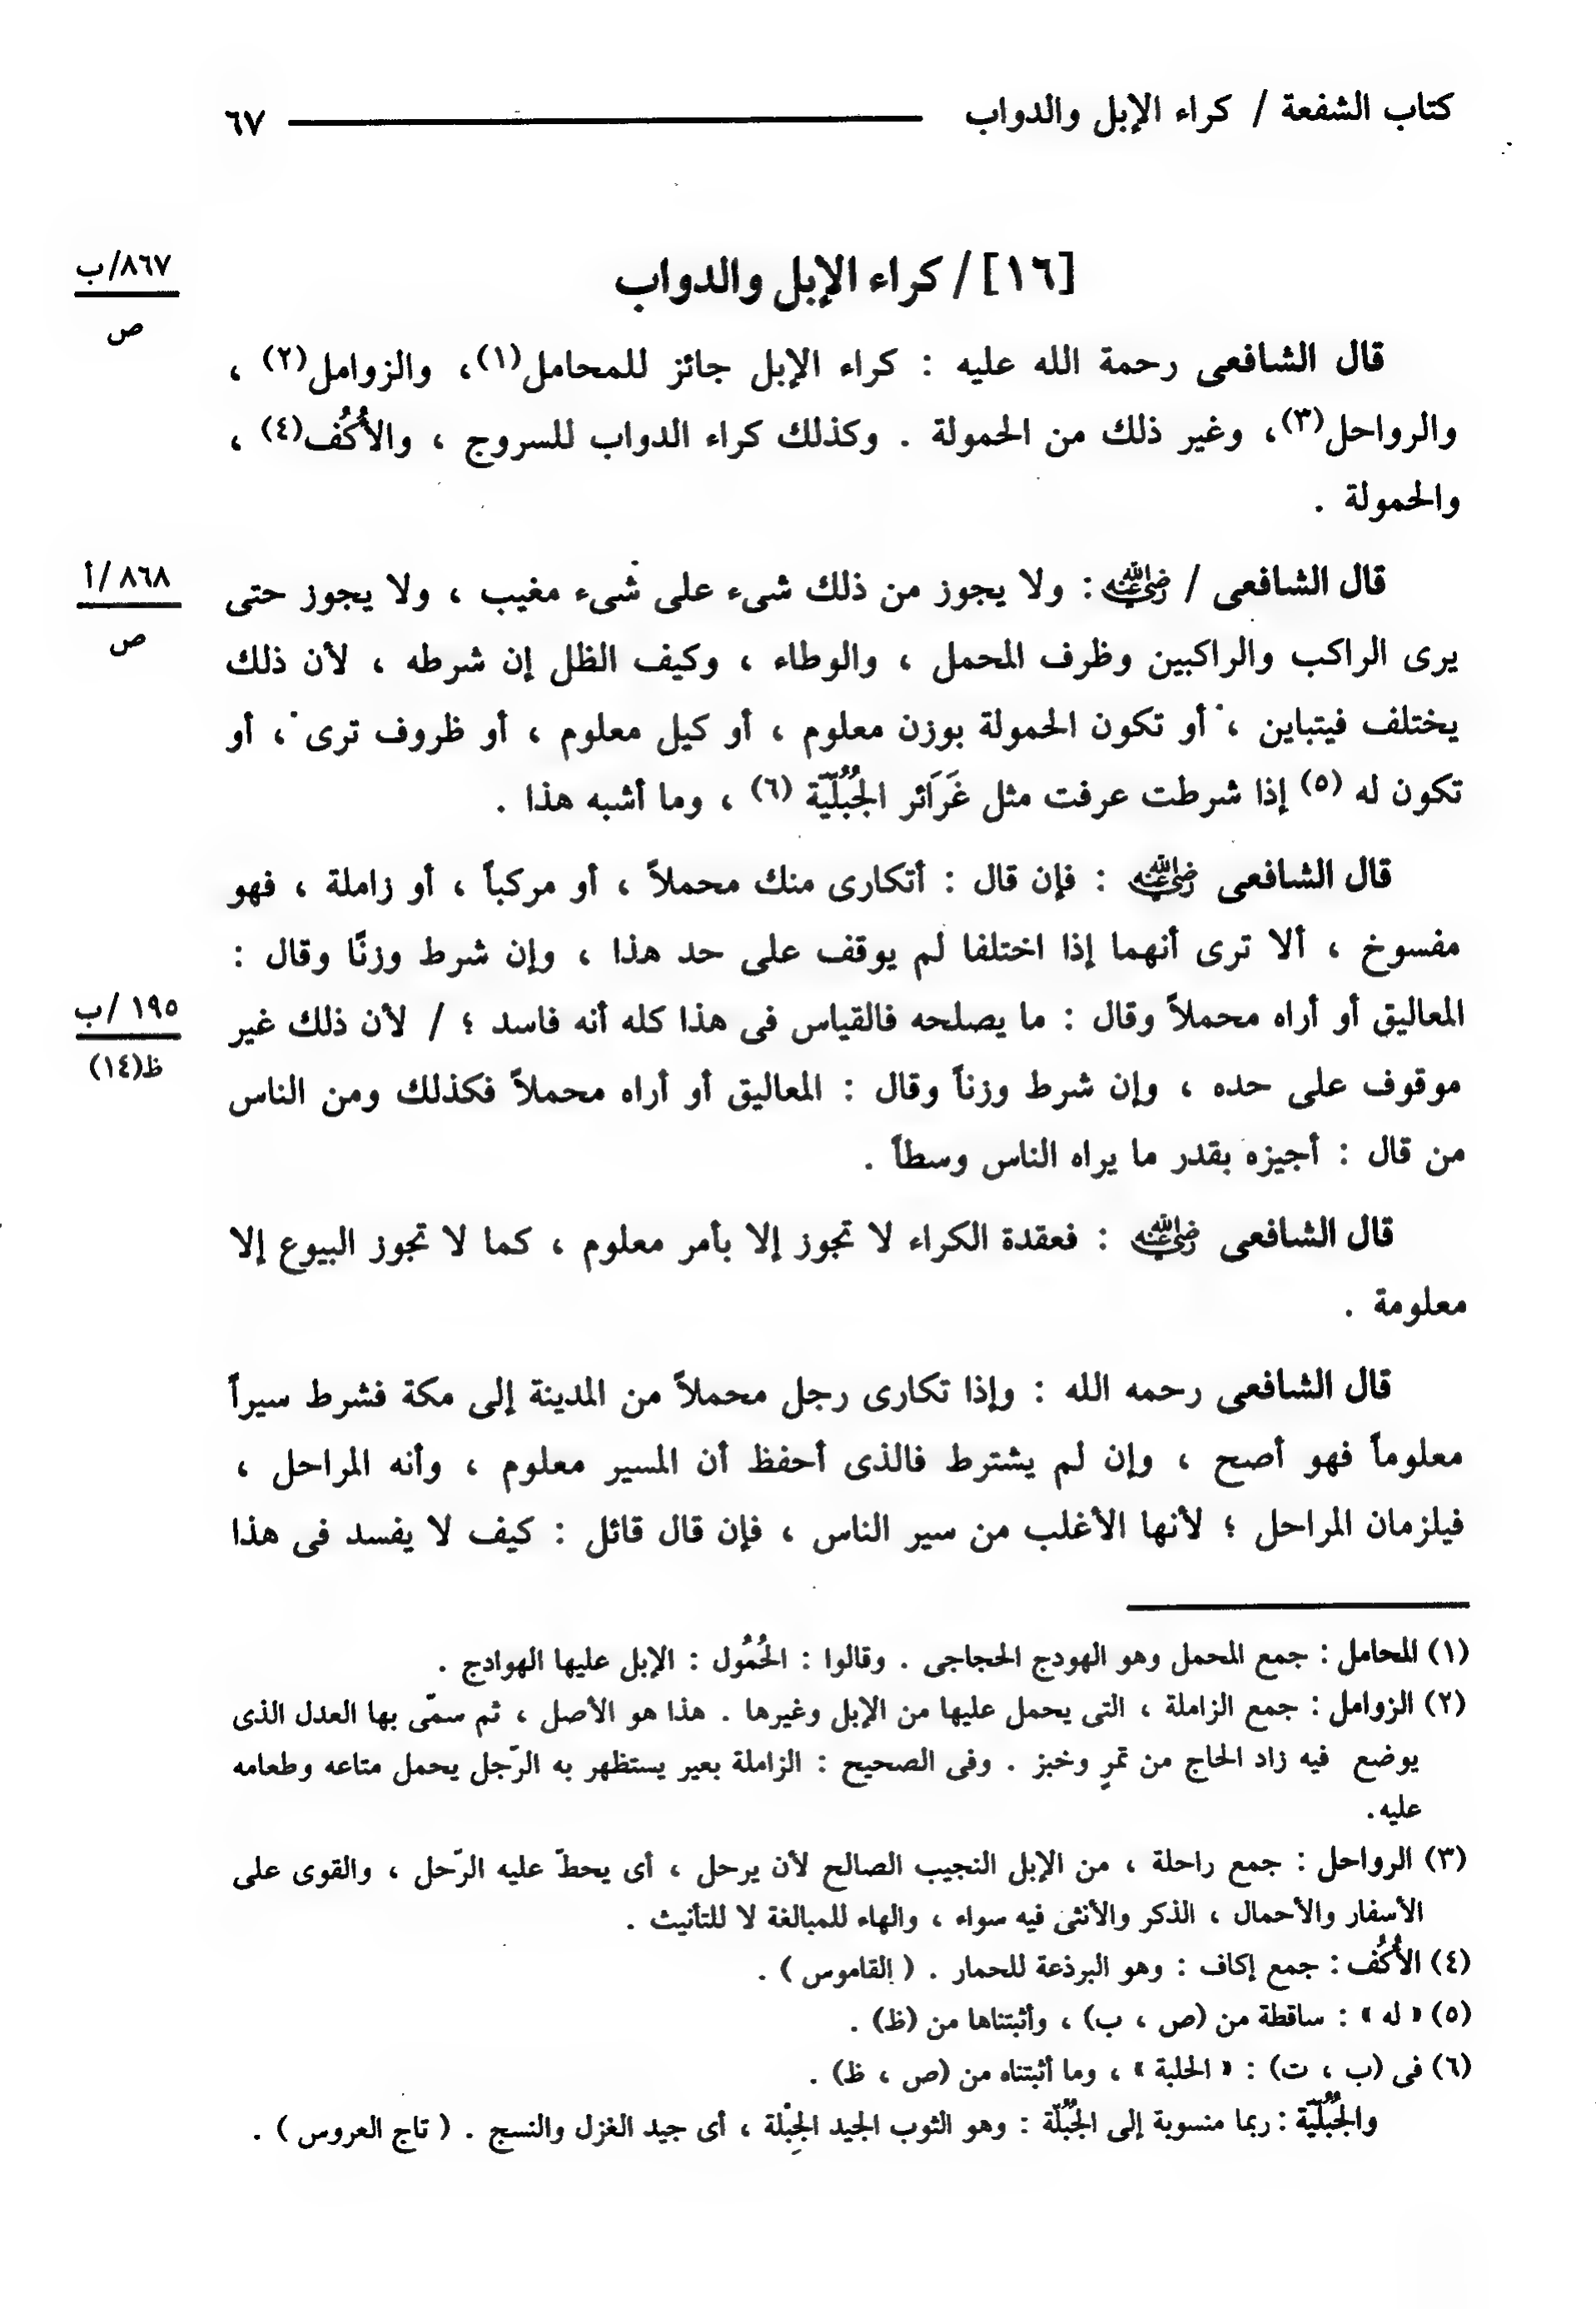 كتاب الشفعة / كراء الإبل والدواب ٦٧
٨٦٧/ب
ص
[١٦] / كراء الإبل والدواب
قال الشافعى رحمة الله عليه : كراء الإبل جائز للمحامل(١)، والزوامل(٢) ،
والرواحل(٣)، وغير ذلك من الحمولة . وكذلك كراء الدواب للسروج ، والأُكُف(٤) ،
والحمولة .
٨٦٨/أ
ص
قال الشافعى / رضي الله عنه : ولا يجوز من ذلك شىء على شىء مغيب ، ولا يجوز حتى
يرى الراكب والراكبين وظرف المحمل ، والوطاء ، وكيف الظل إن شرطه ، لأن ذلك
يختلف فيتباين ، أو تكون الحمولة بوزن معلوم ، أو كيل معلوم ، أو ظروف ترى ، أو
تكون له (٥) إذا شرطت عرفت مثل غَرَائر الجُبُلِّيَّة (٦) ، وما أشبه هذا .
قال الشافعى رضي الله عنه : فإن قال : أتكارى منك محملاً ، أو مركباً ، أو زاملة ، فهو
مفسوخ ، ألا ترى أنهما إذا اختلفا لم يوقف على حد هذا ، وإن شرط وزنًا وقال :
١٩٥ /ب
ظ(١٤)
المعاليق أو أراه محملاً وقال : ما يصلحه فالقياس فى هذا كله أنه فاسد ؛ / لأن ذلك غير
موقوف على حده ، وإن شرط وزناً وقال : المعاليق أو أراه محملاً فكذلك ومن الناس
من قال : أجيزه بقدر ما يراه الناس وسطاً .
قال الشافعى رضي الله عنه : فعقدة الكراء لا تجوز إلا بأمر معلوم ، كما لا تجوز البيوع إلا
معلومة .
قال الشافعى رحمه الله : وإذا تكارى رجل محملاً من المدينة إلى مكة فشرط سيراً
معلوماً فهو أصح ، وإن لم يشترط فالذى أحفظ أن المسير معلوم ، وأنه المراحل ،
فيلزمان المراحل ؛ لأنها الأغلب من سير الناس ، فإن قال قائل : كيف لا يفسد فى هذا
(١) المحامل : جمع المحمل وهو الهودج الحجاجى . وقالوا : الحُمُول : الإبل عليها الهوادج .
(٢) الزوامل : جمع الزاملة ، التى يحمل عليها من الإبل وغيرها . هذا هو الأصل ، ثم سمّى بها العدل الذى
يوضع فيه زاد الحاج من تمرٍ وخبز . وفى الصحيح : الزاملة بعير يستظهر به الرّجل يحمل متاعه وطعامه
عليه.
(٣) الرواحل : جمع راحلة ، من الإبل النجيب الصالح لأن يرحل ، أى يحطّ عليه الرّحل ، والقوى على
الأسفار والأحمال ، الذكر والأنثى فيه سواء ، والهاء للمبالغة لا للتأنيث .
(٤) الأُكُف : جمع إكاف : وهو البرذعة للحمار . ( القاموس ) .
(٥) « له » : ساقطة من (ص ، ب) ، وأثبتناها من (ظ) .
(٦) فى (ب ، ت) : « الحلبة » ، وما أثبتناه من (ص ، ظ) .
والجُبُلِّيَّة : ربما منسوبة إلى الجُبُلَّة : وهو الثوب الجيد الجِبْلة ، أى جيد الغزل والنسج . ( تاج العروس ) .